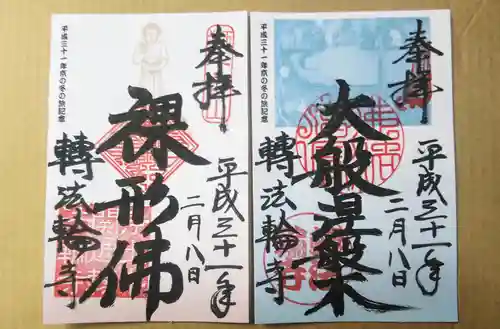 平成三十一年京の冬の旅記念
奉拝
裸形佛
平成三十一年
二月八日
轉法輪寺
平成三十一年京の冬の旅記念
奉拝
大般涅槃
平成三十一年
二月八日
轉法輪寺